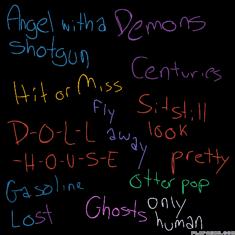 Angel with a
shotgun
Demons
Centuries
Hit or Miss
Fly
away
Sit still
look
pretty
D-O-L-L
-H-O-U-S-E
Gasoline
Otter pop
Lost
Ghosts
only
human
FLIPANIM.COM